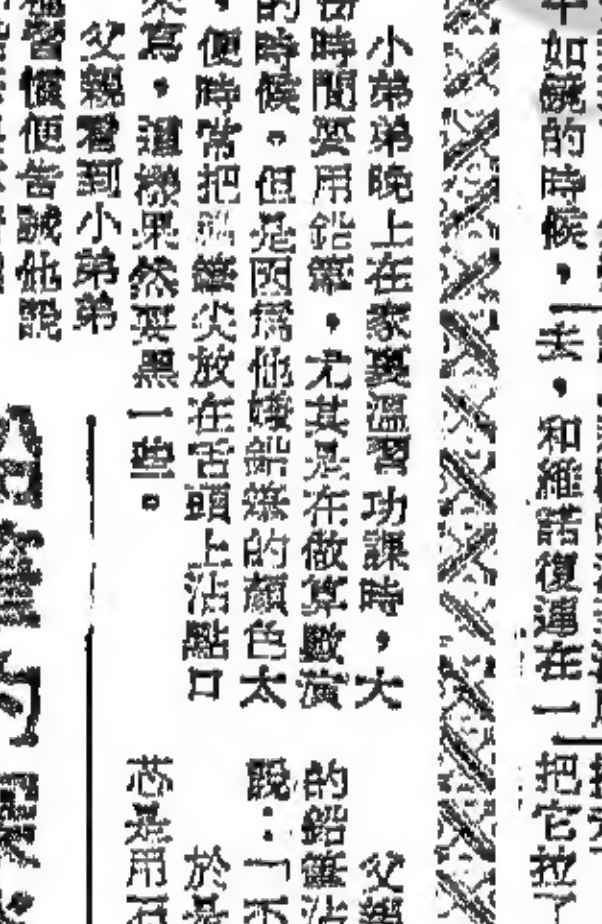 如饒的時候，
去，和維諾復運在一
把它拉了
小弟弟晚上在家裏溫習功課時，大
時間要用鉛筆，尤其是在做算數演
的時候。但是因爲他嫌鉛筆的顏色太
，便時常把鉛筆尖放在舌頭上沾點口
來寫，這樣果然要黑一些。
父親看到小弟弟
習慣便告誡他說
父
的鉛筆沾
說：「不
於是
芯是用石
鉛筆的